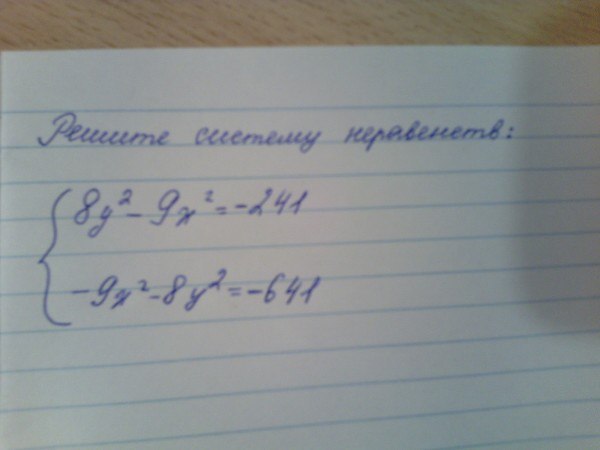 Решите систему неравенств:
8y² - 9x² = -241
-9x² - 8y² = -641